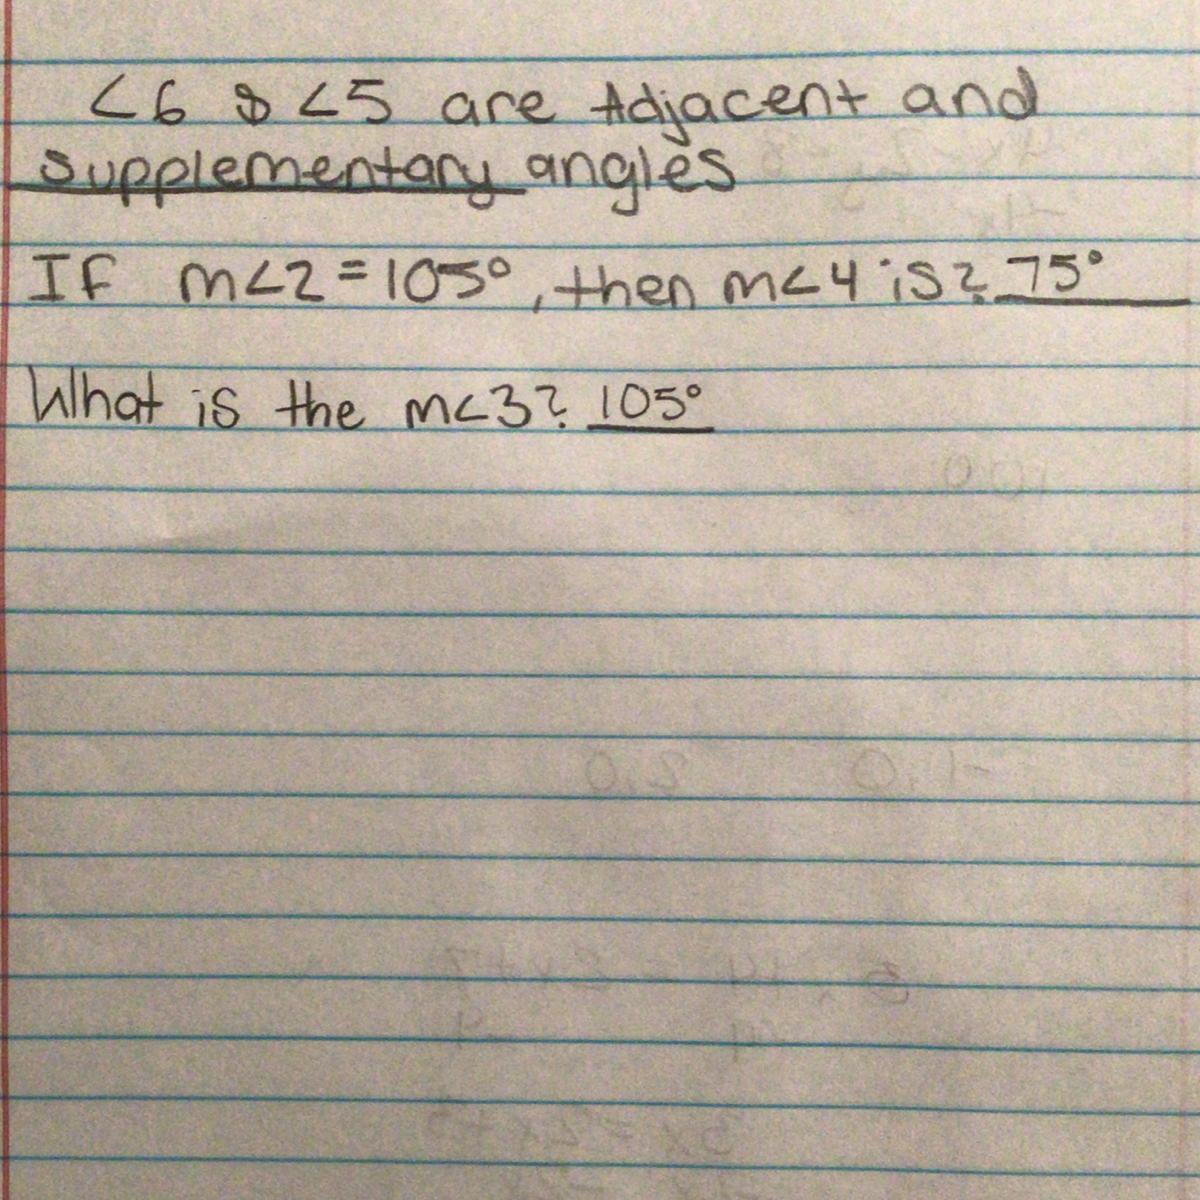 <6 & <5 are Adjacent and
supplementary angles
If m<2 = 105°, then m<4 is? 75°
What is the m<3? 105°